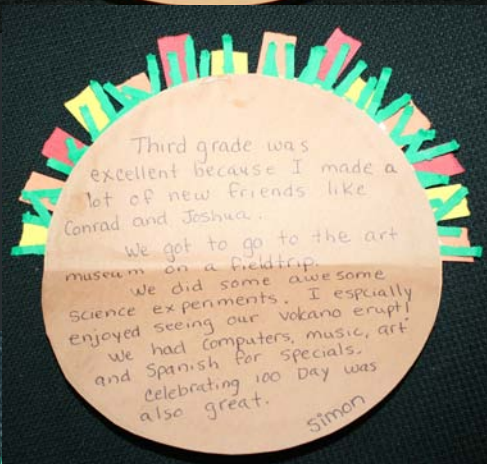 Third grade was
excellent because I made a
lot of new friends like
Conrad and Joshua.
We got to go to the art
museum on a fieldtrip.
We did some awesome
science experiments. I espcially
enjoyed seeing our volkano erupt!
We had Computers, music, art
and Spanish for specials.
Celebrating 100 Day was
also great.
Simon